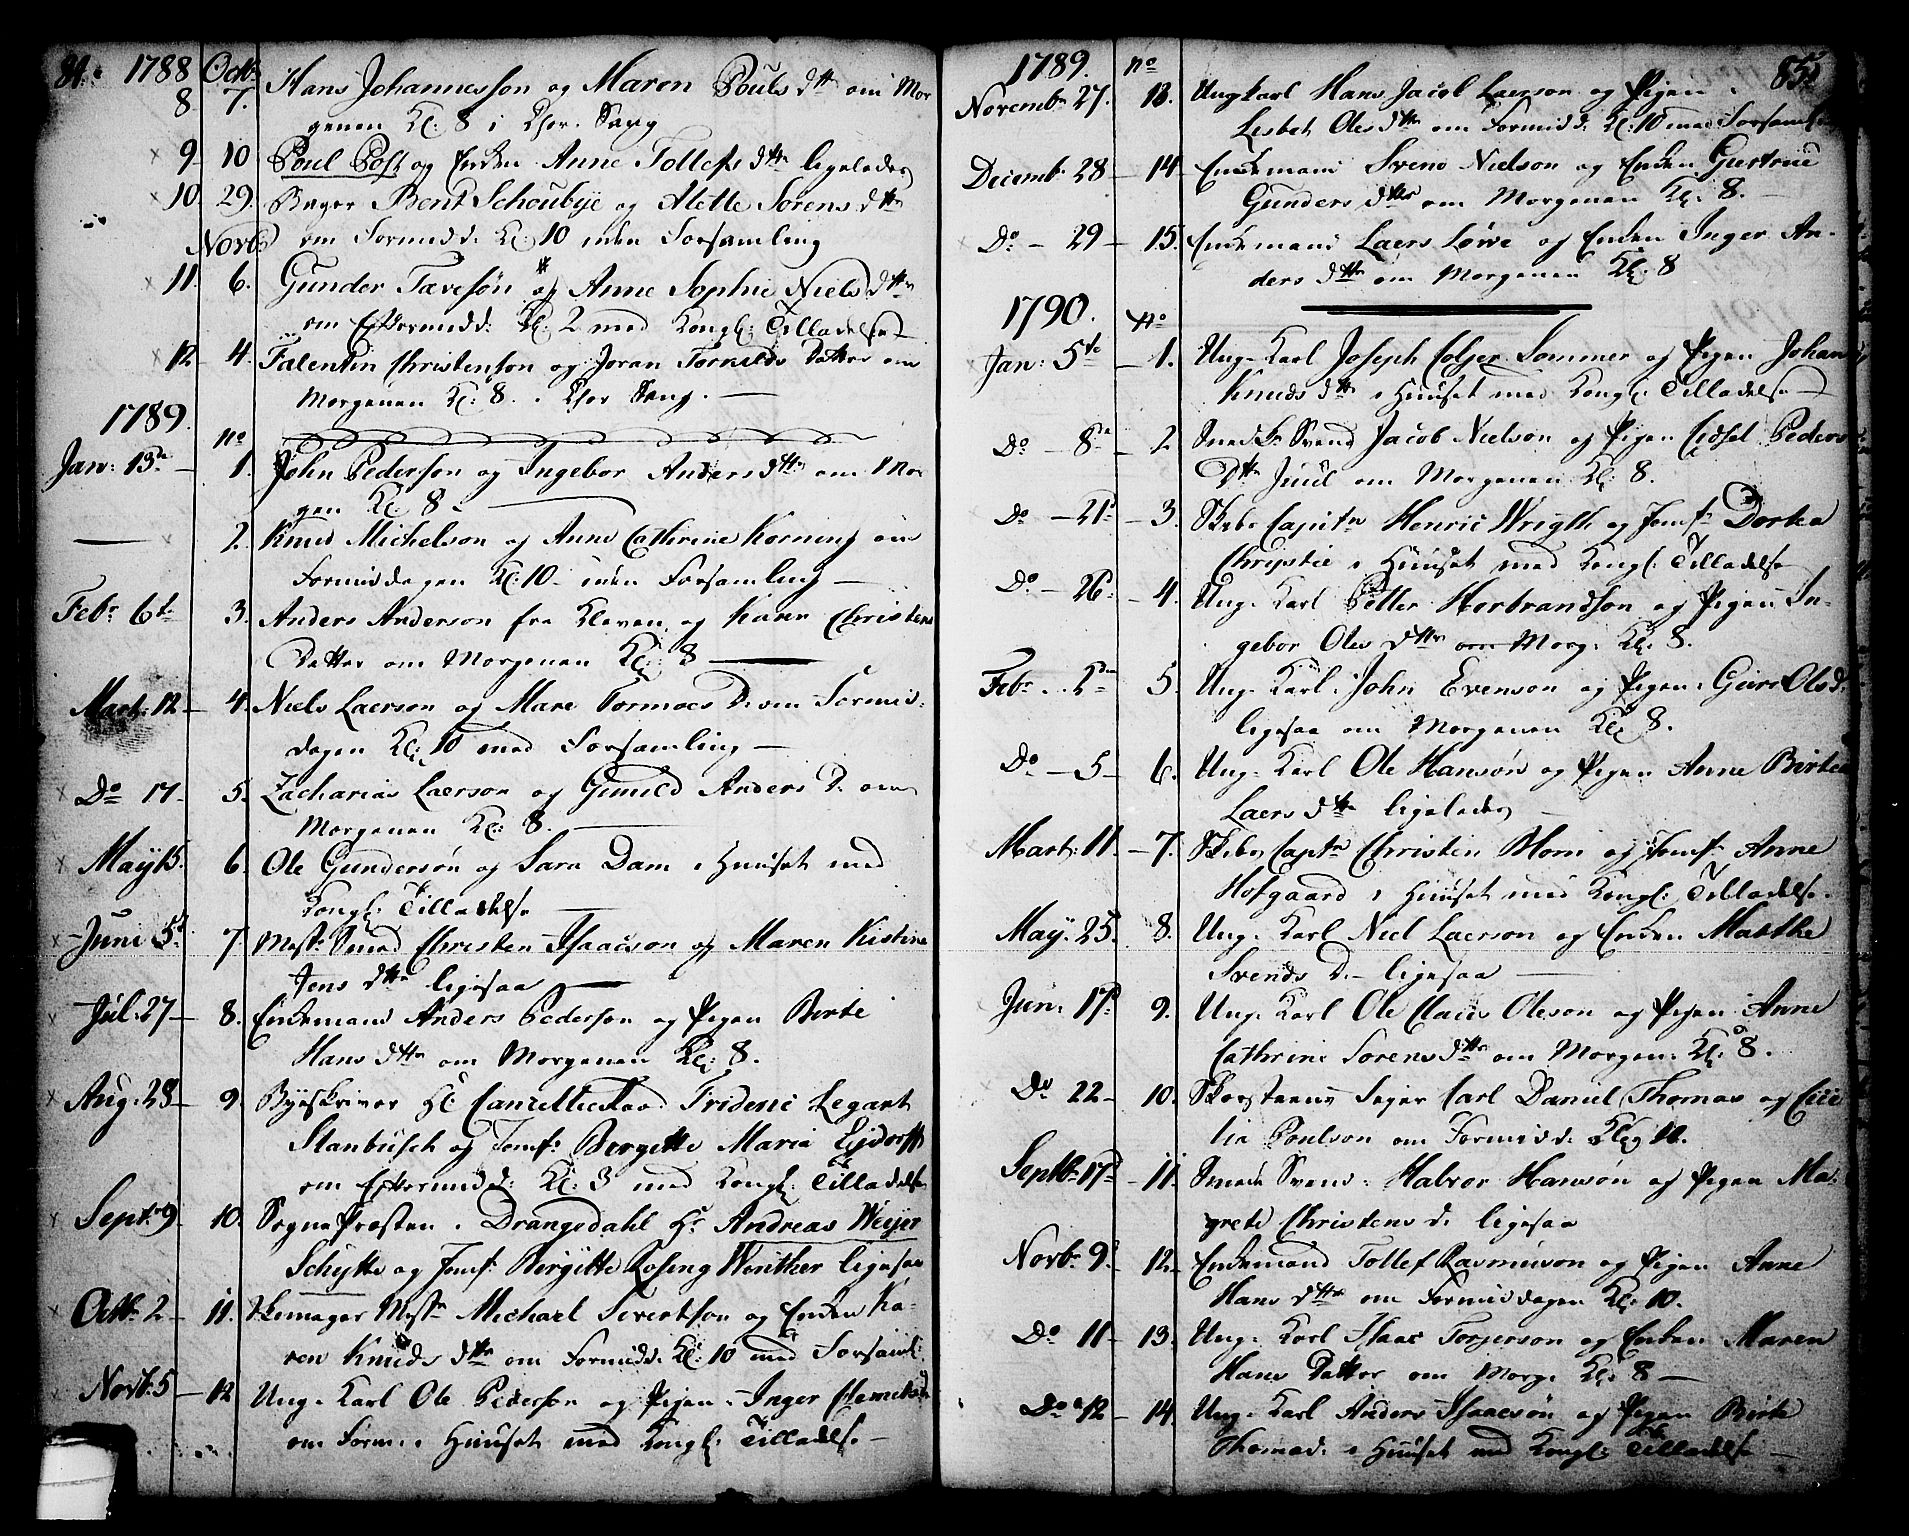 84. 1788 Octb:
8 7. Hans Johannesson og Maren Pouls dttr om Mor
genen Kl: 8 i Chor-Sang
9 10 Poul Post og Enken Anne Tollefs dttr ligeledes
10. 29. Bager Bent Schoubye og Alette Sörens dttr
Novb: om Formidd: Kl: 10 uden Forsamling
11. 6. Gunder Tavesøn og Anne Sophie Niels dttr
om Eftermidd: Kl: 2 med Kongl: Tilladelse
12 4. Falentin Christenson og Joran Torkilds Datter om
Morgenen Kl: 8. i Chor Sang.
1789. no
Jan: 13de 1. John Pederson og Ingebor Anders dttr om Mor
gen Kl: 8
2. Knud Michelson og Anne Cathrine Korning om
Formiddagen Kl: 10 uden Forsamling
Febr 6te 3. Anders Anderson fra Kleven og Karen Christens
Datter om Morgenen Kl: 8
Mart: 12 4. Niels Laerson og Mare Tormoes D. om Formid-
dagen Kl: 10 med Forsamling
Do 17 5. Zacharias Laerson og Gunild Anders D. om
Morgenen Kl: 8.
May 15. 6. Ole Gundersøn og Sara Dam i Huuset med
Kongl: Tilladelse
Juni 5t 7. Mestr Smed Christen Isaacson og Maren Kistine
Jens dttr ligesaa
Jul. 27 8. Enkemand Anders Pederson og Pigen Birte
Hans dttr om Morgenen Kl: 8.
Aug. 28 9. Byeskriver Hr Cancellieraad Frideric Legart
Stanbusch og Jomfr Bergette Maria Eydorff
om Eftermidd: Kl: 3 med Kongl: Tilladelse
Septr 9 10. Sogne Præsten i Drangedahl Hr Andreas Weyer
Schytte og Jomfr Birgitte Rosing Winther ligesaa
Octb. 2 11. Skomager Mestr Michael Severtson og Enken Ka-
ren Knuds dttr om Formidd: Kl: 10 med Forsaml:
Novb. 5 12 Ung-Karl Ole Pederson og Pigen Inger
om Form: i Huuset med Kongl: Tilladelse
1789. no 85.
Novembr 27. 13. Ungkarl Hans Jacob Laerson og Pigen
Lisbet Oles dttr om Formidd: Kl: 10 med Forsamling
Decemb. 28 14. Enkemand Svend Nielson og Enken Gurtrue
Gunders dttr om Morgenen Kl: 8.
Do 29 15. Enkemand Laers Løwe og Enken Inger An-
ders dttr om Morgenen Kl: 8
1790. No
Jan: 5te 1. Ung-Karl Joseph Coljer Sommer og Pigen Johanne
Knuds dttr i Huuset med Kongl: Tilladelse
Do 8de 2. Smed Svend Jacob Nielson og Pigen Peders
Dttr Juul om Morgenen Kl: 8.
Do 21d 3. Skibs Capitn Henric Wrigth og Jomfr Dorthea
Chrystie i Huuset med Kongl: Tilladelse
Do 26d 4. Ung-Karl Petter Horbrandson og Pigen In-
gebor Oles dttr om Morg: Kl: 8.
Febr 2den 5. Ung-Karl John Evenson og Pigen Guro Ols d.
ligesaa om Morgenen Kl: 8.
Do 5 6. Ung-Karl Ole Hansøn og Pigen Anne Birte
Laers dttr ligeledes
Mart: 11. 7. Skibs Captn Christen Horn og Jomfr Anne
Hofgaard i Huuset med Kongl: Tilladelse.
May. 25. 8. Ung-Karl Niel Laerson og Enken Marthe
Svends D. ligesaa
Jun: 17d 9. Ung-Karl Ole Claus Oleson og Pigen Anne
Cathrine Sorens dttr om Morgen: Kl: 8.
Do 22 10. Skorsteens Feger Carl Daniel Thomas og Ceci
lia Poulson om Formidd: Kl: 10.
Septbr 17d 11. Smede Svend: Halvor Hansøn og Pigen Ma-
grete Christens d. ligesaa
Novbr 9d 12. Enkemand Tollef Rasmuson og Pigen Anne
Hans dttr om Formiddagen Kl: 10.
Do 11 13. Ung-Karl Isaac Torjerson og Enken Maren
Hans Datter om Morg: Kl: 8
Do 12 14. Ung-Karl Anders Isaacsøn og Pigen Birte
Thomæd: i Huuset med Kongl: Tilladelse